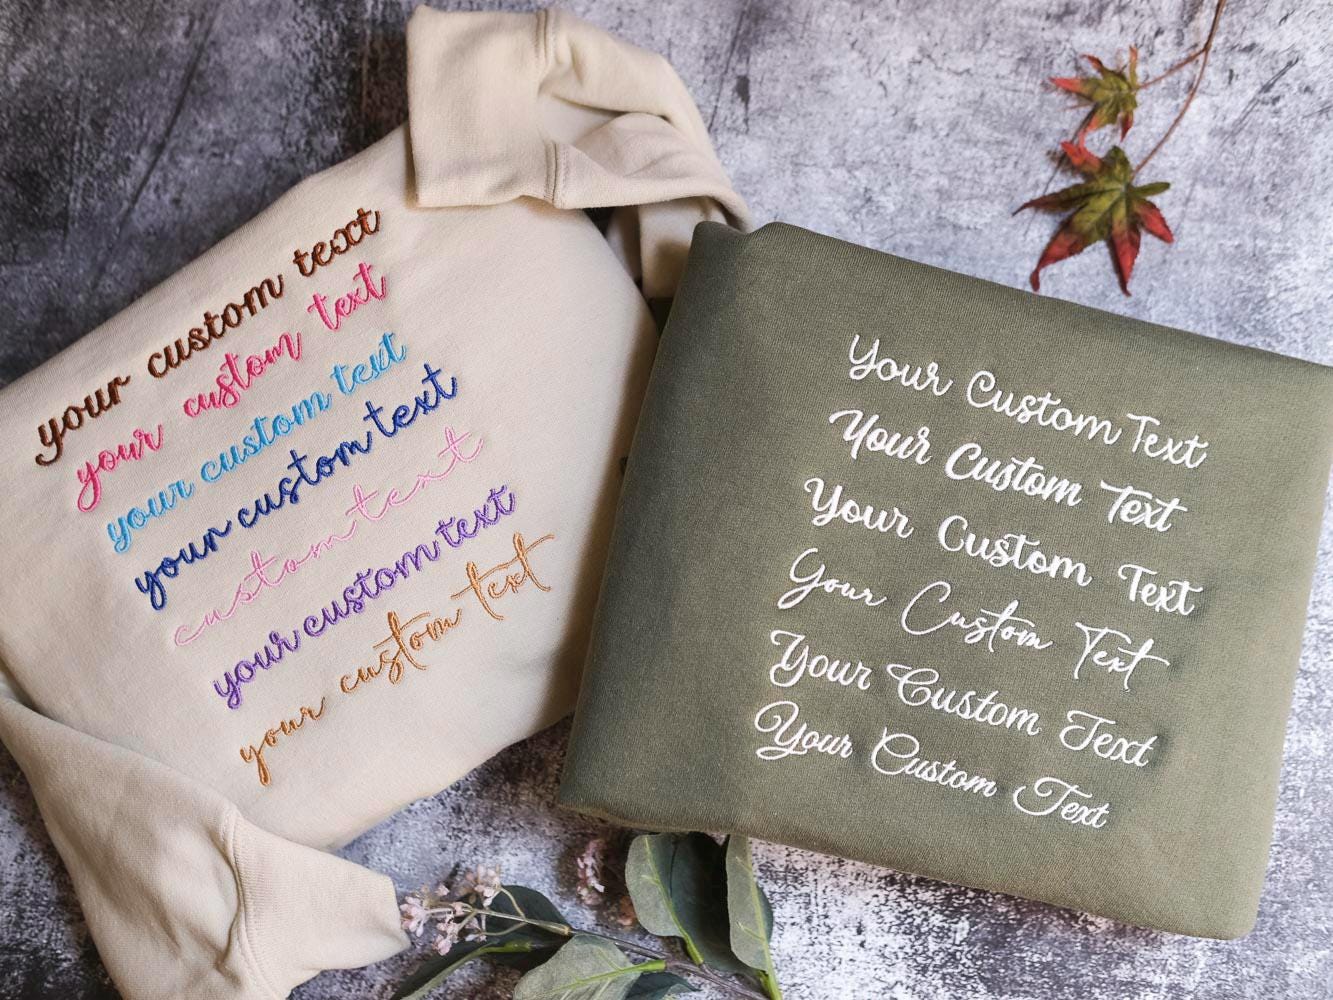 your custom text
your custom text
your custom text
your custom text
custom text
your custom text
your custom text
Your Custom Text
Your Custom Text
Your Custom Text
Your Custom Text
Your Custom Text
Your Custom Text